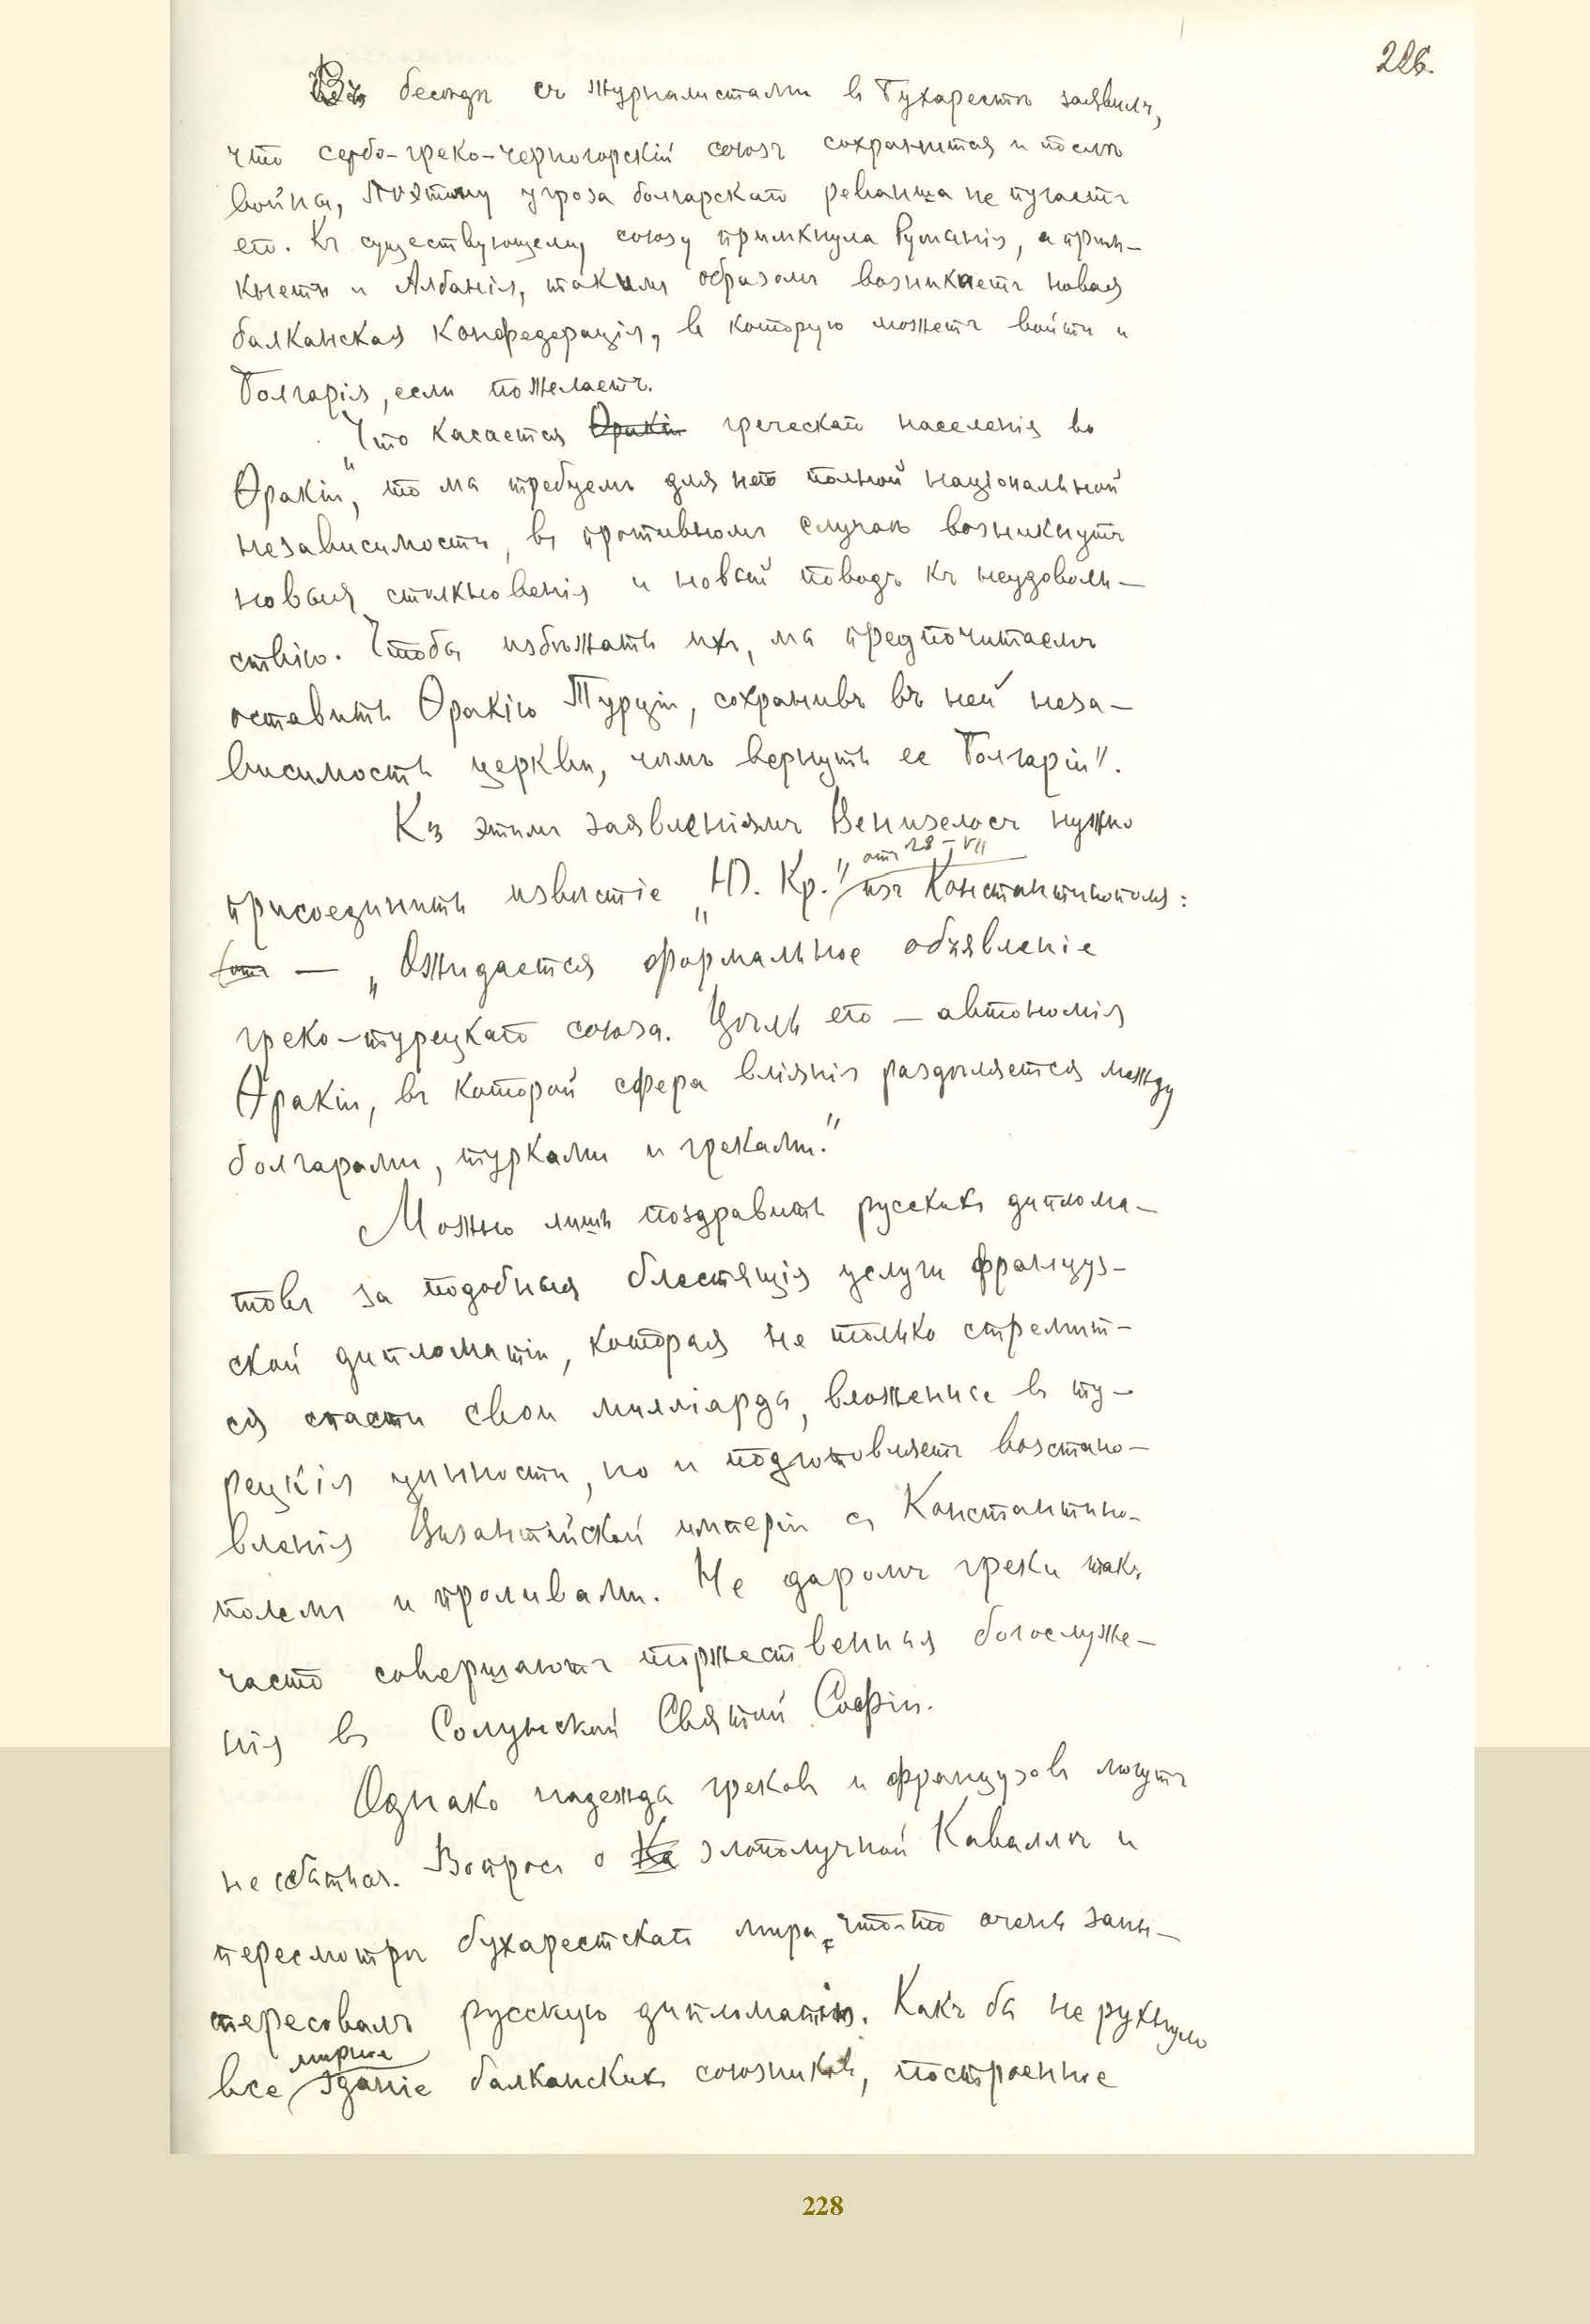 226.
Въ бесѣдѣ съ журналистами в Бухарестѣ заявилъ,
что сербо-греко-черногорскій союзъ сохранится и послѣ
войны, поэтому угроза болгарскаго реванша не пугаетъ
его. Къ существующему союзу примкнула Румынія, а прим-
кнетъ и Албанія, такимъ образомъ возникнетъ новая
балканская конфедерація, в которую можетъ войти и
Болгарія, если пожелаетъ.
„Что касается Ѳракіи греческаго населенія во
Ѳракіи, то мы требуемъ для него полной національной
независимости, въ противномъ случаѣ возникнутъ
новыя столкновенія и новый поводъ къ неудоволь-
ствію. Чтобы избѣжать ихъ, мы предпочитаемъ
оставить Ѳракію Турціи, сохранивъ въ ней неза-
висимость церкви, чѣмъ вернуть ее Болгаріи".
Къ этимъ заявленіямъ Венизелоса нужно
отъ 28-VII
присоединить извѣстіе „Ю. Кр." изъ Константинополя:
(отъ — „Ожидается формальное объявленіе
греко-турецкаго союза. Цѣль его — автономія
Ѳракіи, въ которой сфера вліянія раздѣляется между
болгарами, турками и греками."
Можно лишь поздравить русскихъ диплома-
товъ за подобныя блестящія услуги француз-
ской дипломатіи, которая не только стремит-
ся спасти свои милліарды, вложенные въ ту-
рецкія цѣнности, но и подготовляетъ возстано-
вленія Византійской имперіи съ Константино-
полемъ и проливами. Не даромъ греки такъ
часто совершаютъ торжественныя богослуже-
нія въ Солунской Святой Софіи.
Однако надежды грековъ и французовъ могутъ
не сбыться. Вопросъ о Ка злополучной Каваллѣ и
пересмотрѣ бухарестскаго мира что-то очень заин-
тересовалъ русскую дипломатію. Какъ бы не рухнуло
мирное
все зданіе балканскихъ союзниковъ, построенное
228